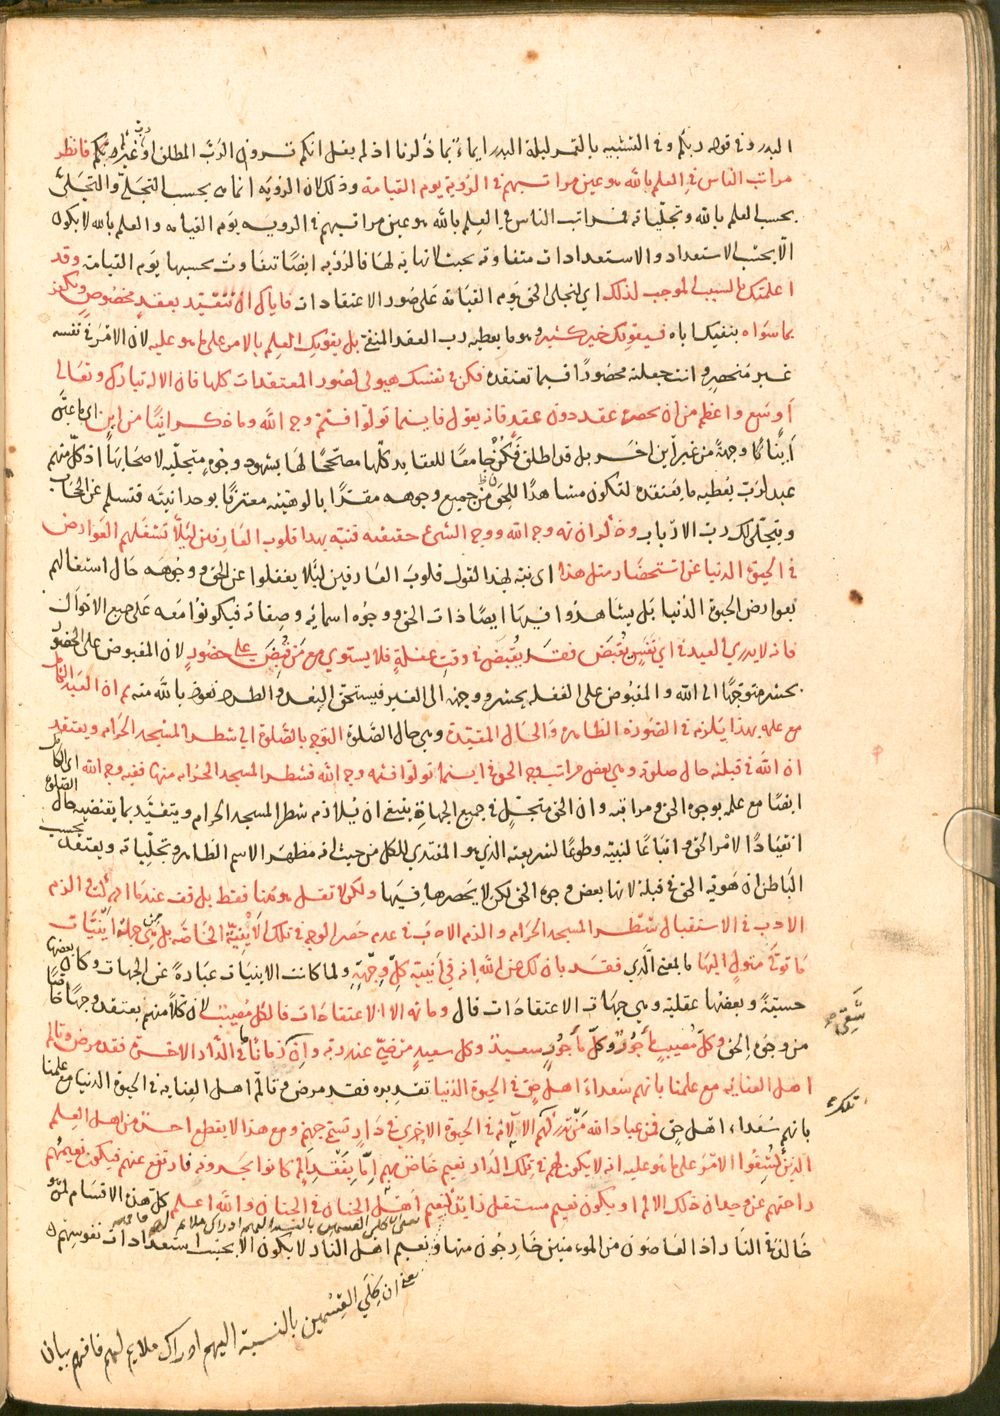 البدر وفي قوله ربكم وفي التشبيه بالقمر ليلة البدر ايماء بما ذكرنا اذ لم يقل انكم ترون الرب المطلق او رب غيركم فانظر
مراتب الناس في العلم بالله هو عين مراتبهم في الرؤية يوم القيامة وذلك لان الرؤية انما هي بحسب التجلي والتجلي
بحسب العلم بالله وتجلياته فمراتب الناس في العلم بالله هو عين مراتبهم في الرؤية يوم القيامة والعلم بالله لا يكون
الا بحسب الاستعداد والاستعدادات متفاوتة بحيث لا نهاية لها فالرؤية ايضا تتفاوت بحسبها يوم القيامة وقد
اعلمتك بالسبب الموجب لذلك اي لتجلي الحق يوم القيامة على صور الاعتقادات فاياك ان تتقيد بعقد مخصوص وتكفر
بما سواه بنفيك اياه فيفوتك خير كثير وهو ما يعطيه رب العقد المنفي بل يفوتك العلم بالامر على ما هو عليه لان الامر في نفسه
غير منحصر وانت جعلته محصورا فيما تعتقده فكن في نفسك هيولى لصور المعتقدات كلها فان الاله تبارك وتعالى
اوسع واعظم من ان يحصره عقد دون عقد فانه يقول فاينما تولوا فثم وجه الله وما ذكر اينا من اين اي ما عين
اينا ما وجهة من غير اين اخر بل قد اطلق فكن جامعا للعقايد كلها مصححا لها بشهود وجوه متجلية لاصحابها اذ كل منهم
عبد لرب يعطيه ما يعتقده لتكون مشاهدا للحق من جميع وجوهه مقرا بالوهيته معترفا بوحدانيته فتسلم عن الحجاب
ويتجلى لك رب الارباب وذكر ان ثم وجه الله ووجه الشئ حقيقته فنبه بهذا قلوب العارفين لئلا تشغلهم العوارض
في الحيوة الدنيا عن استحضار مثل هذا اي نبه بهذا القول قلوب العارفين لئلا يغفلوا عن الحق ووجوهه حال اشتغالهم
بعوارض الحيوة الدنيا بل يشاهدوا فيها ايضا ذات الحق ووجوه اسمائه وصفاته فيكونوا معه على جميع الاحوال
فانه لا يدري العبد في اي نفس يقبض فقد يقبض في وقت غفلة فلا يستوي مع من قبض على حضور لان المقبوض على الحضور
يحشر متوجها الى الله والمقبوض على الغفلة يحشر ووجهه الى الغير فيستحق البعد والطرد نعوذ بالله منه ثم ان العبد الكامل
مع علمه بهذا يلزم في الصورة الظاهرة والحال المقيدة وهي حال الصلوة التوجه بالصلوة الى شطر المسجد الحرام ويعتقد
ان الله في قبلته حال صلوته وهي بعض مراتب وجه الحق في اينما تولوا فثم وجه الله فشطر المسجد الحرام منها ففيه وجه الله اي الكامل
ايضا مع علمه بوجوه الحق ومراتبه وان الحق متجل في جميع الجهات ينبغي ان يلازم شطر المسجد الحرام ويتقيد بما يقتضيه حال الصلوة
انقيادا لامر الحق واتباعا لنبيه وطوعا لشريعته الذي هو المقتدى للكل من حيث انه مظهر الاسم الظاهر وتجلياته ويعتقد بحسب
الباطن ان هوية الحق في قبلته لانها بعض وجوه الحق لكن لا يحصرها فيها ولكن لا تقل هو هنا فقط بل قف عندما ادركت والزم
الادب في الاستقبال شطر المسجد الحرام والزم الادب في عدم حصر الوجه في تلك الاينية الخاصة بل هي من جملة اينيات
ما تولى متول اليها ما بمعنى الذي فقد بان لك عن الله انه في اينية كل وجهة ولما كانت الاينيات عبارة عن الجهات وكان بعضها
حسية وبعضها عقلية وهي جهات الاعتقادات قال وما ثم الا الاعتقادات فالكل مصيب لان كلا منهم يعتقد وجها خاصا
من وجوه الحق وكل مصيب ماجور وكل ماجور سعيد وكل سعيد مرضي عند ربه وان شقي زمانا ما في الدار الاخرة فقد مرض وتالم
اهل العناية مع علمنا بانهم سعداء اهل حق في الحيوة الدنيا تقديره فقد مرض وتالم اهل العناية في الحيوة الدنيا مع علمنا
بانهم سعداء اهل حق فمن عباد الله من تدركهم الآلام في الحيوة الاخرى في دار تسمى جهنم ومع هذا لا يقطع احد من اهل العلم
الذين كشفوا الامر على ما هو عليه انه لا يكون لهم في تلك الدار نعيم خاص بهم اما بفقد الم كانوا يجدونه فارتفع عنهم فيكون نعيمهم
راحتهم عن وجدان ذلك الالم او يكون نعيم مستقل زايد كنعيم اهل الجنان في الجنان والله اعلم كل هذه الاقسام لمن هو
خالد في النار اذ العاصون من المؤمنين خارجون منها ونعيم اهل النار لا يكون الا بحسب استعدادات نفوسهم
يعني ان كلي القسمين بالنسبة اليهم ادراك ملايم لهم فافهم بيان
شقي صح
تلك